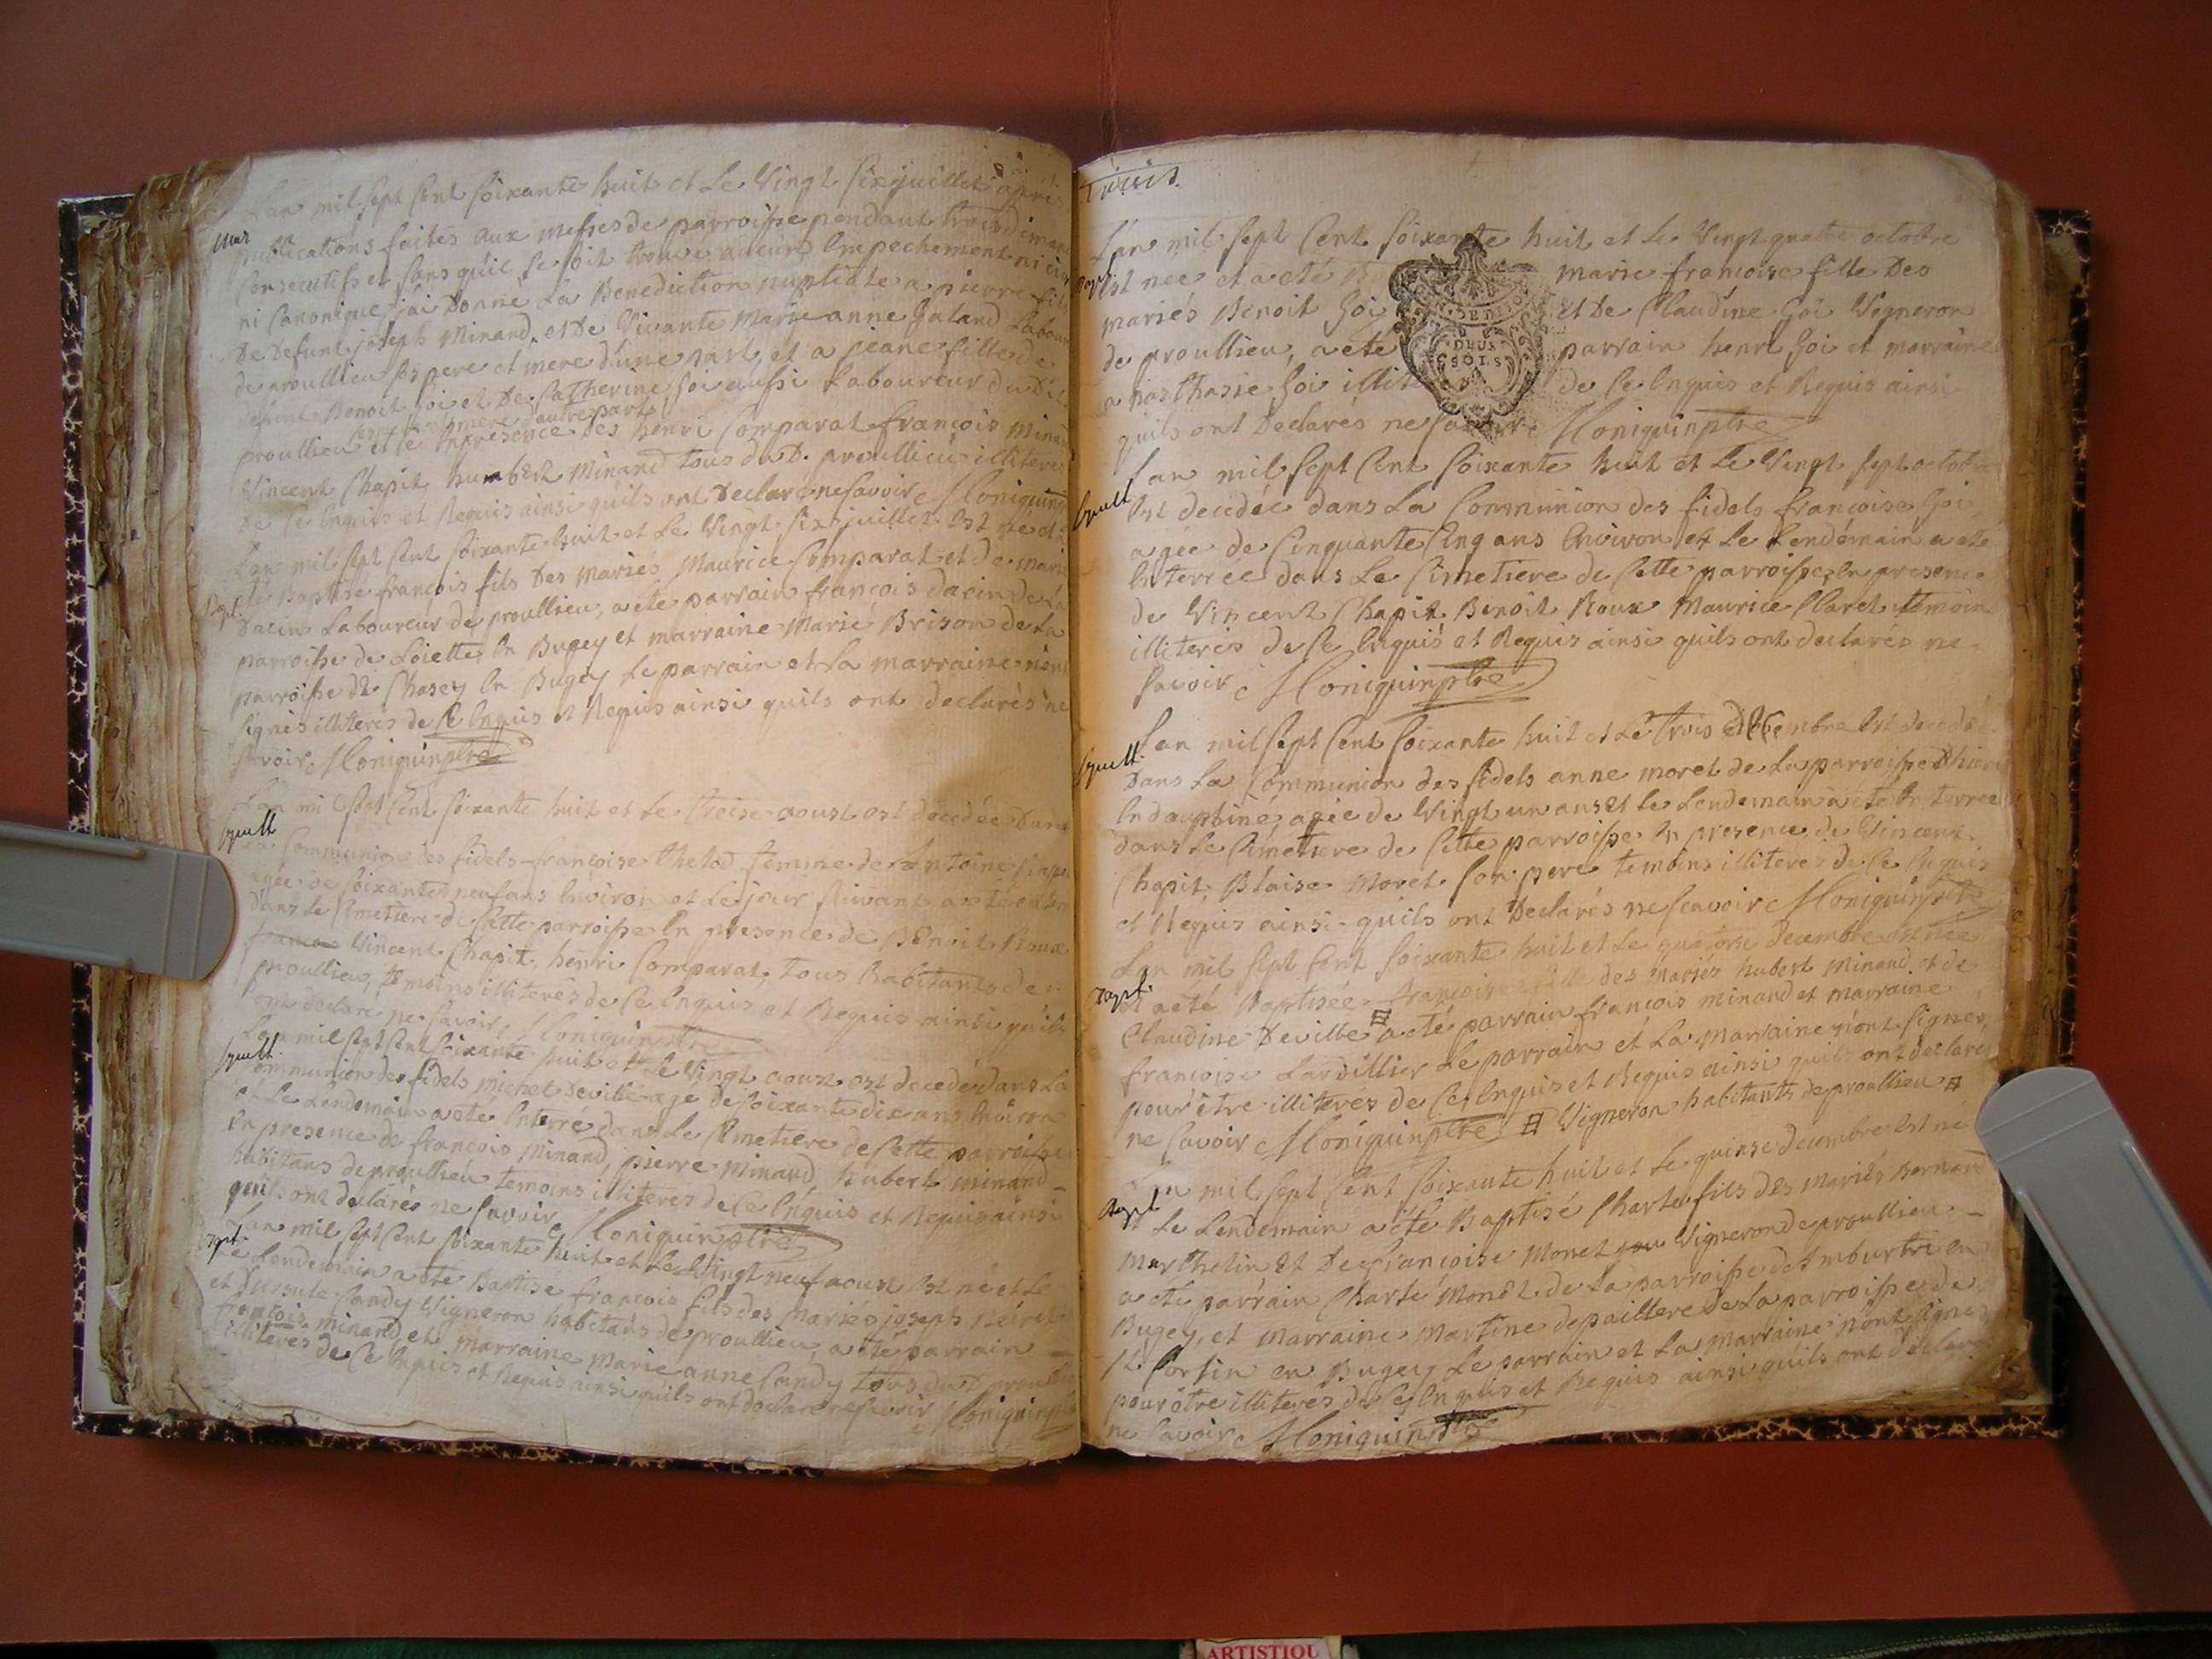 Lan mil sept Cent soixante huit et Le Vingt six juillet après
Mar
publications faites aux messes de parroisse pendant trois diman
Consecutifs et sans qu'il se soit trouvé aucun Empechement ni civil
ni Canonique, j'ai Donné La Benediction nuptiale a pierre fils
De Defunt joseph Minand, et De Vivante Marie anne Galand Labour
de proullieu ses pere et mere d'une part, et a jeane fille de
defunt Benoit Goi et De Catherine Goi aussi Laboureur du Dit
ses pere et mere d'autre part
proullieu et ce En presence des henri Comparat francois Minand
Vincent Chapit humbert Minand tous du D. proullieu illiteres
De Ce Enquis et Requis ainsi qu'ils ont Declaré ne savoir Moniquin ptre
Lan mil sept Cent soixante huit et Le Vingt six juillet Est né et a
Bapt.
été Baptisé francois fils Des mariés Maurice Comparat et de marie
Dacin Laboureur de proullieu, a eté parrain francois dacin de la
parroisse de Loiette En Bugey et marraine Marie Brison de La
parroisse de Chasey En Bugey Le parrain et La marraine n'ont
signés illiteres de Ce Enquis et Requis ainsi quils ont declarés ne
savoir Moniquin ptre
Lan mil sept Cent soixante huit et Le treise aoust est decedée Dans
sepult
La Communion des fidels francoise thelod femme de Antoine
agée de soixante neuf ans Environ et Le jour suivant a eté enter
dans Le Cimetiere de Cette parroisse En presence de Benoit Roux
francois Vincent Chapit, henri Comparat, tous habitants de
proullieu, temoins illiteres de Ce Enquis et Requis ainsi qu'ils
ont declaré ne savoir Moniquin ptre
Lan mil sept Cent soixante huit et Le Vingt aoust est decedé dans La
sepult.
Communion des fidels michel deville agé de soixante dix ans Environ
et Le Lendemain a eté Enterré dans Le Cimetiere de Cette parroisse
En presence de francois Minand, pierre Minand, hubert minand
habitans de proullieu temoins illiteres de Ce Enquis et Requis ainsi
quils ont declarés ne savoir Moniquin ptre
Lan mil sept Cent soixante huit et Le Vingt neuf aoust Est né et Le
Bapt.
Le Lendemain a eté Baptisé francois fils des mariés joseph
et Dursule Candy Vigneron habitans de proullieu, a eté parrain
francois minand et marraine marie anne Candy tous du D proullieu
illiteres de Ce Enquis et Requis ainsi quils ont declaré ne savoir Moniquin ptre
Trois
Lan mil sept Cent soixante huit et Le Vingt quatre octobre
Bapt
Est née et a eté marie francoise fille Des
mariés Benoit Goi et De Claudine Goi Vigneron
de proullieu, a eté parrain henri Goi et marraine
anasthasie Goi de Ce Enquis et Requis ainsi
quils ont Declarés ne savoir Moniquin ptre
Lan mil sept Cent soixante huit et Le Vingt sept octobre
sepult
Est decedée dans La Communion des fidels francoise Goi
agée de Cinquante Cinq ans Environ et Le Lendemain a eté
Enterrée dans Le Cimetiere de Cette parroisse En presence
de Vincent Chapit Benoit Roux Maurice Claret temoin
illiteres de Ce Enquis et Requis ainsi quils ont declarés ne
savoir Moniquin ptre
Lan mil sept Cent soixante huit et Le Trois Decembre Est decedée
sepult.
Dans La Communion des fidels anne moret de La parroisse
En dauphiné, agée de Vingt un ans et Le Lendemain a eté En terrée
dans Le Cimetiere de Cette parroisse En presence de Vincent
Chapit, Blaise Moret son pere temoins illiteres de Ce Enquis
et Requis ainsi quils ont Declarés ne scavoir Moniquin ptre
Lan mil sept Cent soixante huit et Le quatorse Decembre est née
Bapt.
Et a eté Baptisée francoise fille des Mariés hubert Minand et de
Claudine Deville a eté parrain francois minand et marraine
francoise Lardillier Le parrain et La Marraine n'ont signés
pour être illiteres de Ce Enquis et Requis ainsi quils ont declarés
ne savoir Moniquin ptre Vigneron habitants de proullieu
Lan mil sept Cent soixante huit et Le quinse decembre Est né
Bapt
et Le Lendemain a eté Baptisé Charle fils des mariés Bernard
Marthelin Et De francoise Monet Vigneron de proullieu
a eté parrain Charle Monet de La parroisse de Amburtri en
Bugey, et marraine Martine depaillere de La parroisse de
St Sorlin en Bugey Le parrain et La marraine n'ont signés
pour être illiteres de Ce Enquis et Requis ainsi quils ont declaré
ne savoir Moniquin ptre
ARTISTIQU